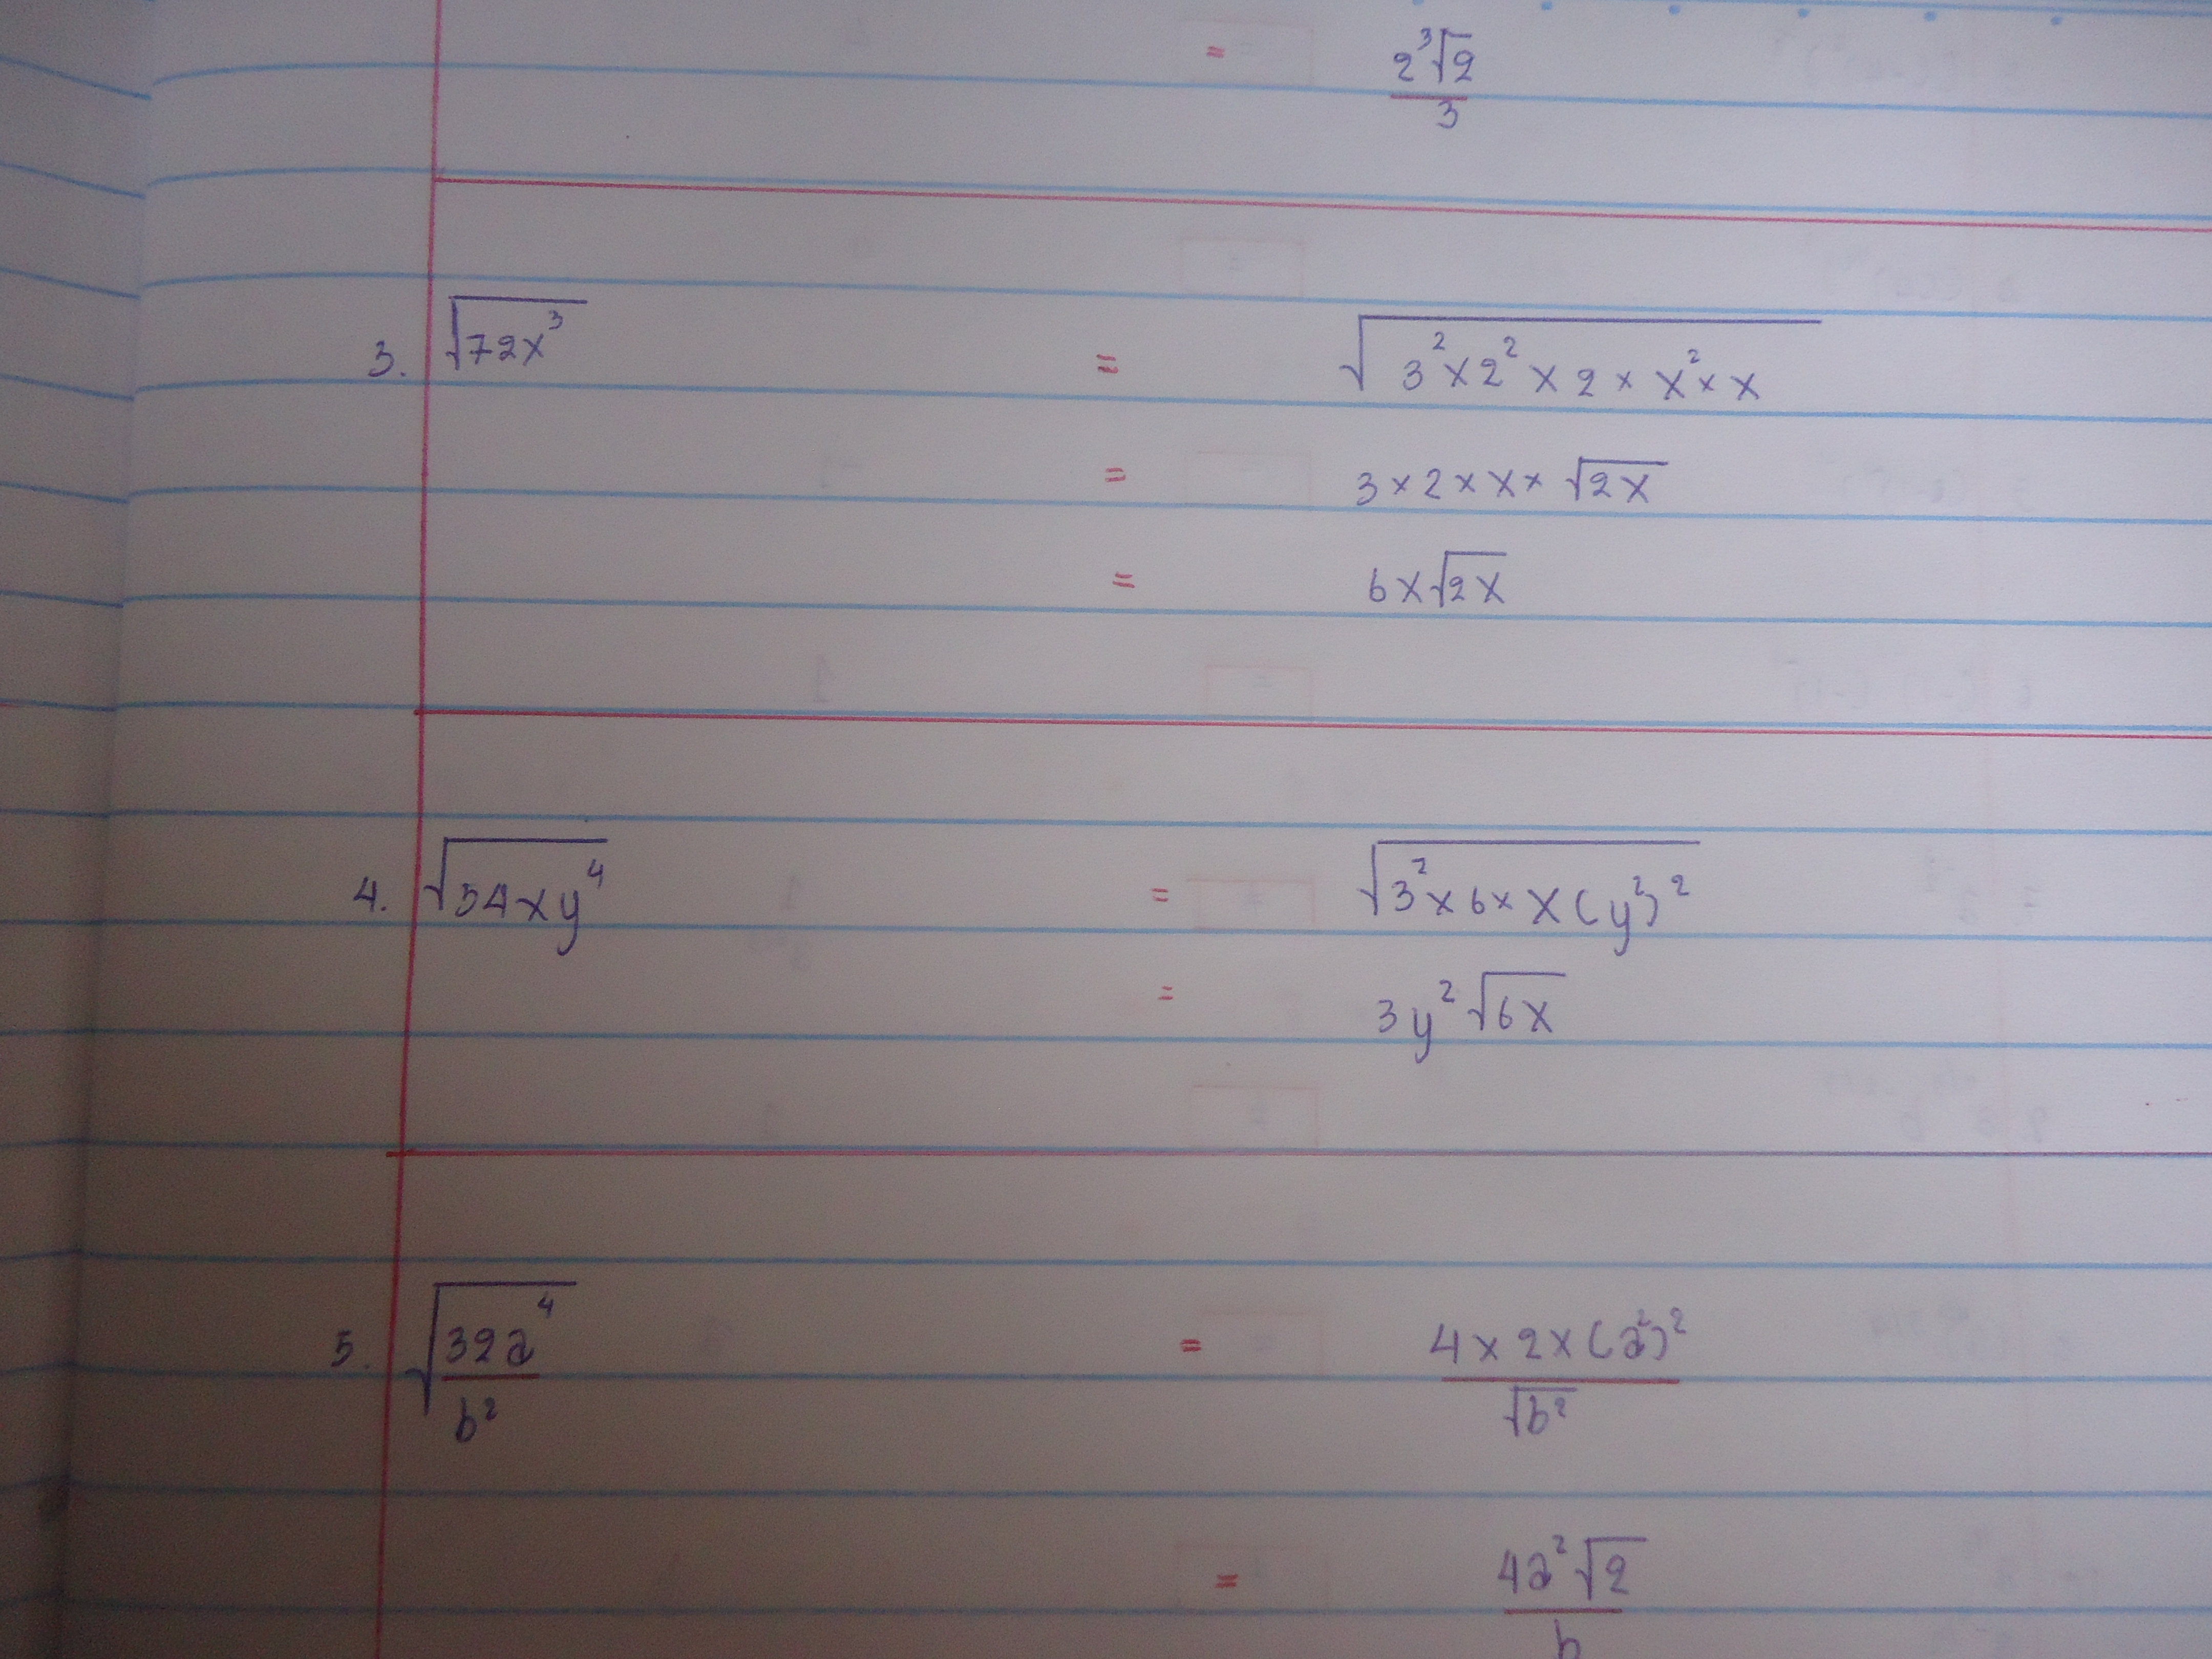 = 2∛2/3
3. √(72x³) = √(3² × 2² × 2 × x² × x)
= 3 × 2 × x × √(2x)
= 6x√(2x)
4. √(54xy⁴) = √(3² × 6 × x(y²)²)
= 3y²√(6x)
5. √(32a⁴/b²) = 4 × 2 × (a²)²/√(b²)
= 4a²√2/b